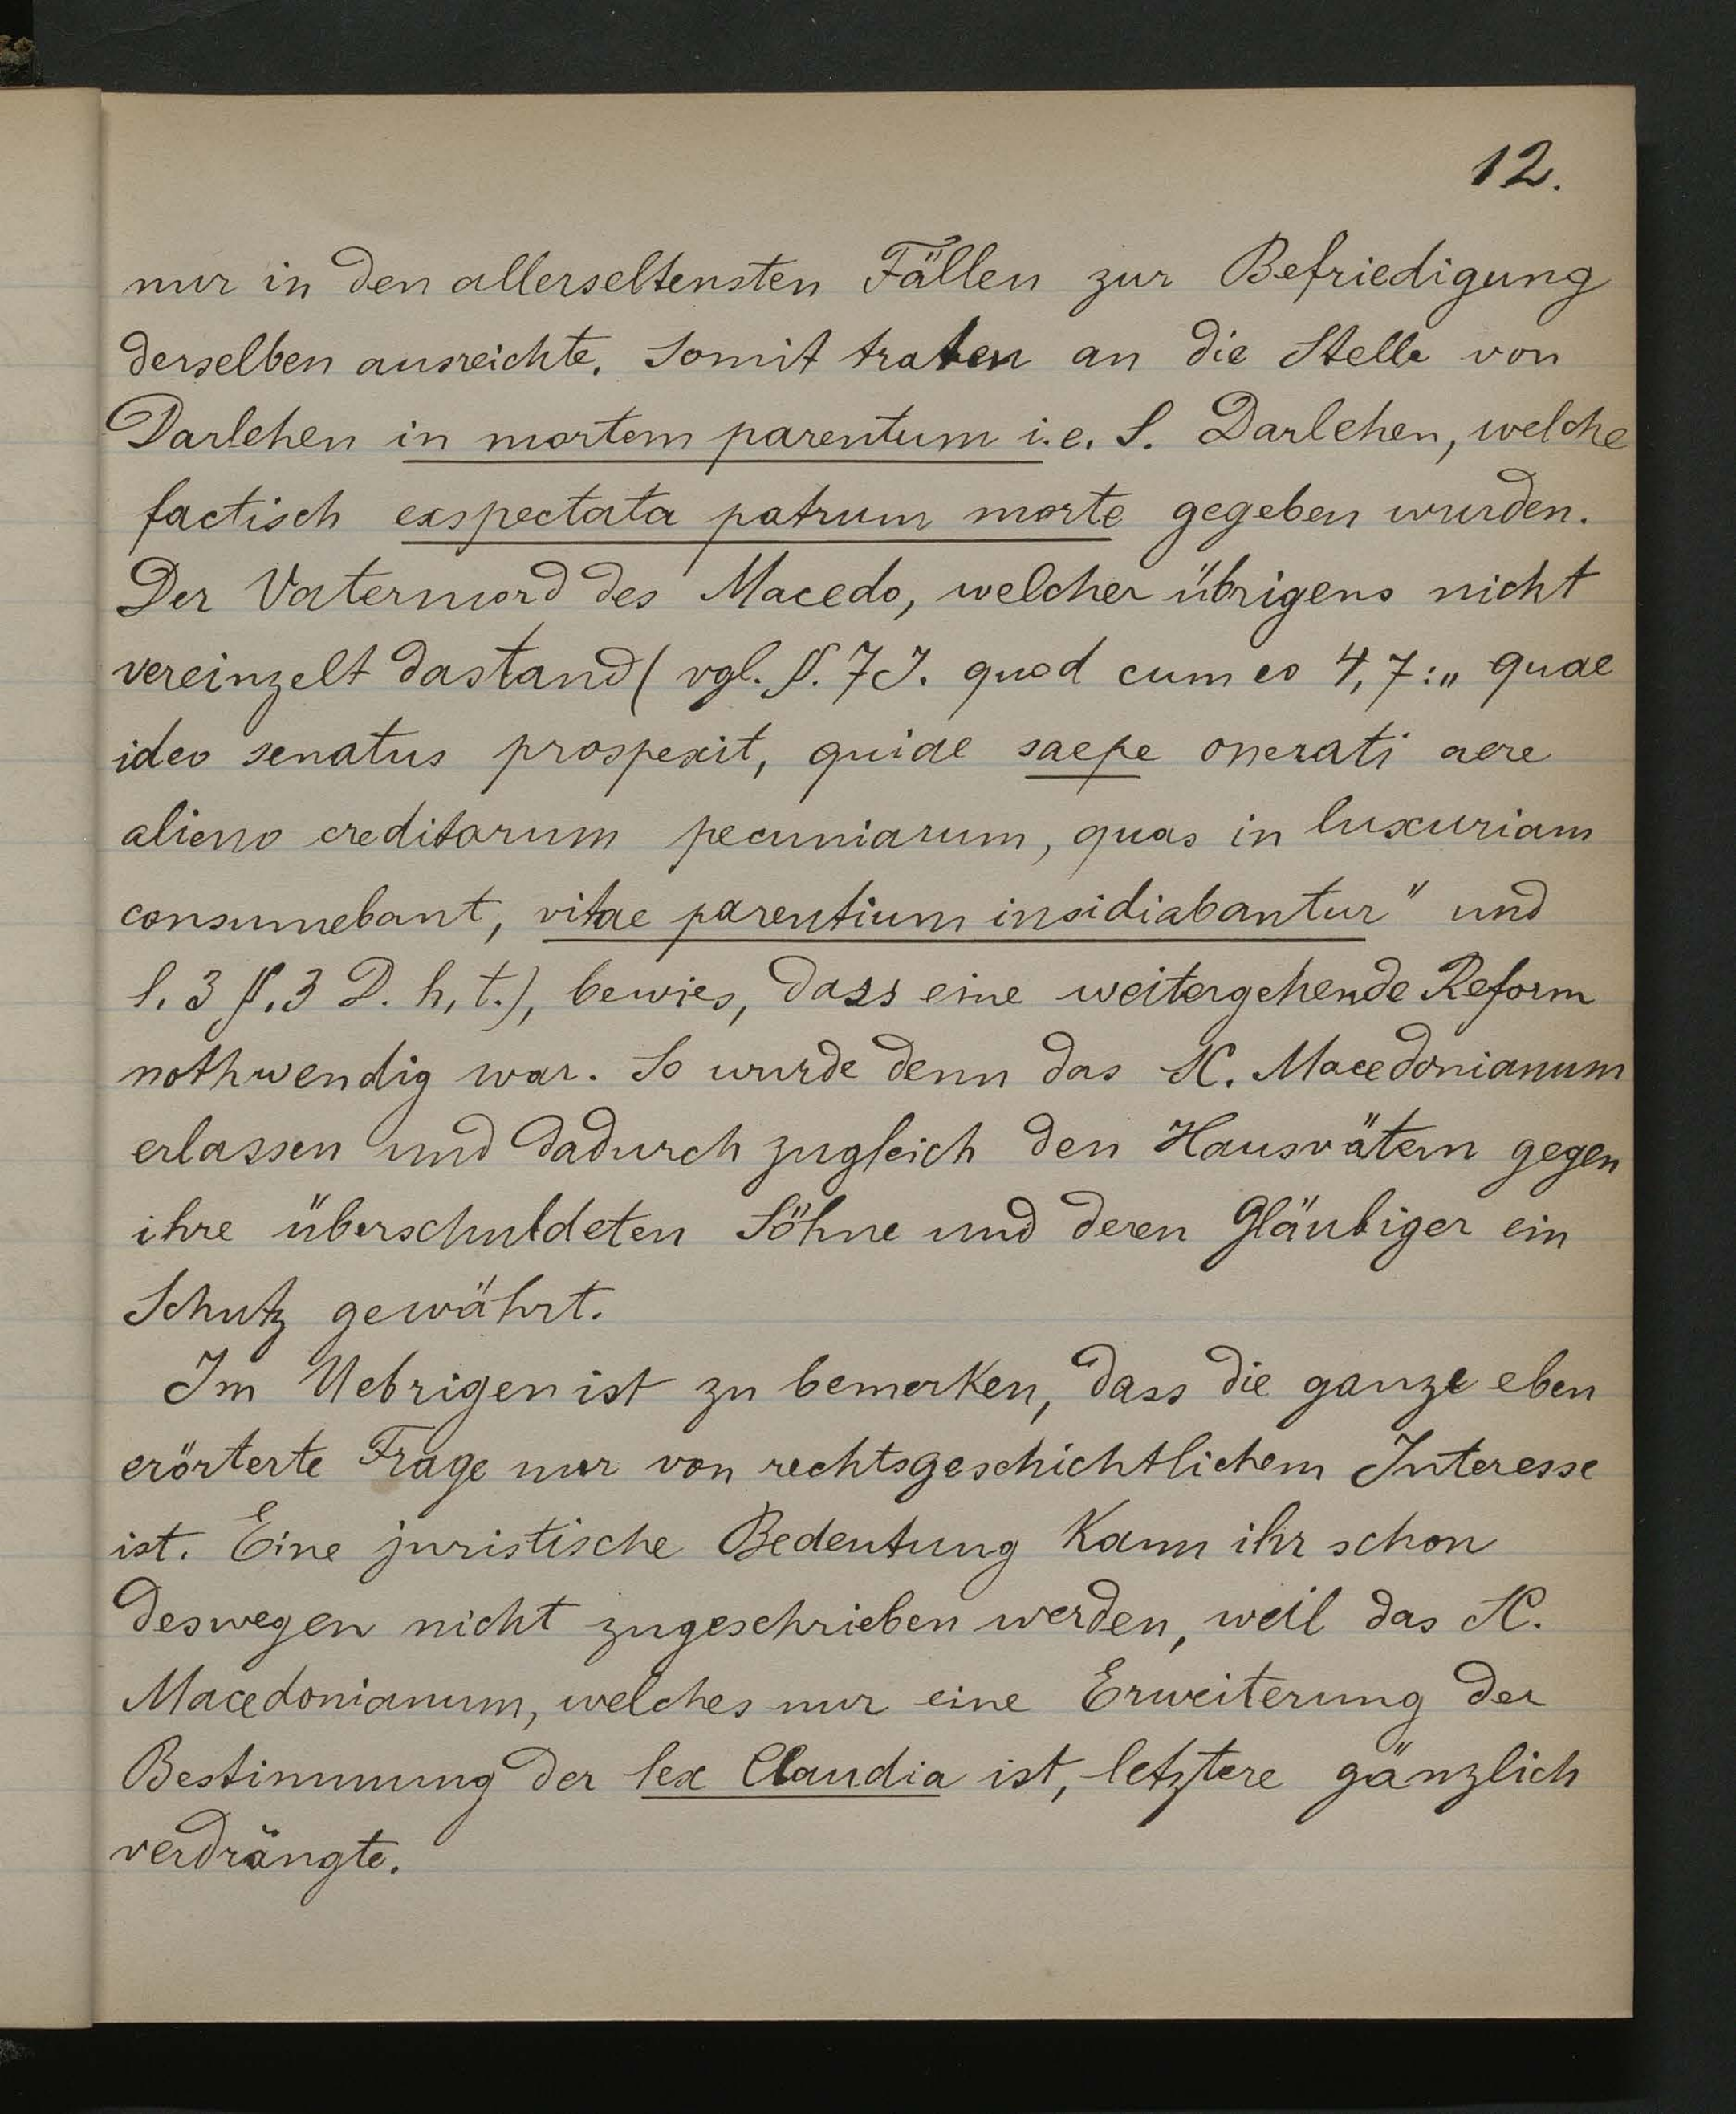 12.
nur in den allerseltensten Fällen zur Befriedigung
derselben ausreichte. Somit traten an die Stelle von
Darlehen in mortem parentum i. e. S. Darlehen, welche
factisch exspectata patrum morte gegeben wurden.
Der Vatermord des Macedo, welcher übrigens nicht
vereinzelt dastand (vgl. §. 7 J. quod cum eo 4,7: „quae
ideo senatus prospexit, quiae saepe onerati aere
alieno creditarum pecuniarum, quas in luxuriam
consumebant, vitae parentium insidiabantur" und
l. 3 §. 3 D. h. t.), bewies, dass eine weitergehende Reform
nothwendig war. So wurde denn das SC. Macedonianum
erlassen und dadurch zugleich den Hausvätern gegen
ihre überschuldeten Söhne und deren Gläubiger ein
Schutz gewährt.
Im Uebrigen ist zu bemerken, dass die ganze eben
erörterte Frage nur von rechtsgeschichtlichem Interesse
ist. Eine juristische Bedeutung kann ihr schon
deswegen nicht zugeschrieben werden, weil das SC.
Macedonianum, welches nur eine Erweiterung der
Bestimmung der lex Claudia ist, letztere gänzlich
verdrängte.